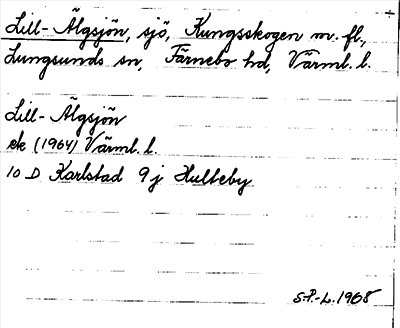 Lill-Älgsjön, sjö, Kungsskogen m. fl.,
Lungsunds sn, Färnebo hd, Värml. l.
Lill-Älgsjön
ek (1964) Värml. l.
10 D Karlstad 9 j Hulteby
S.P.-L. 1968